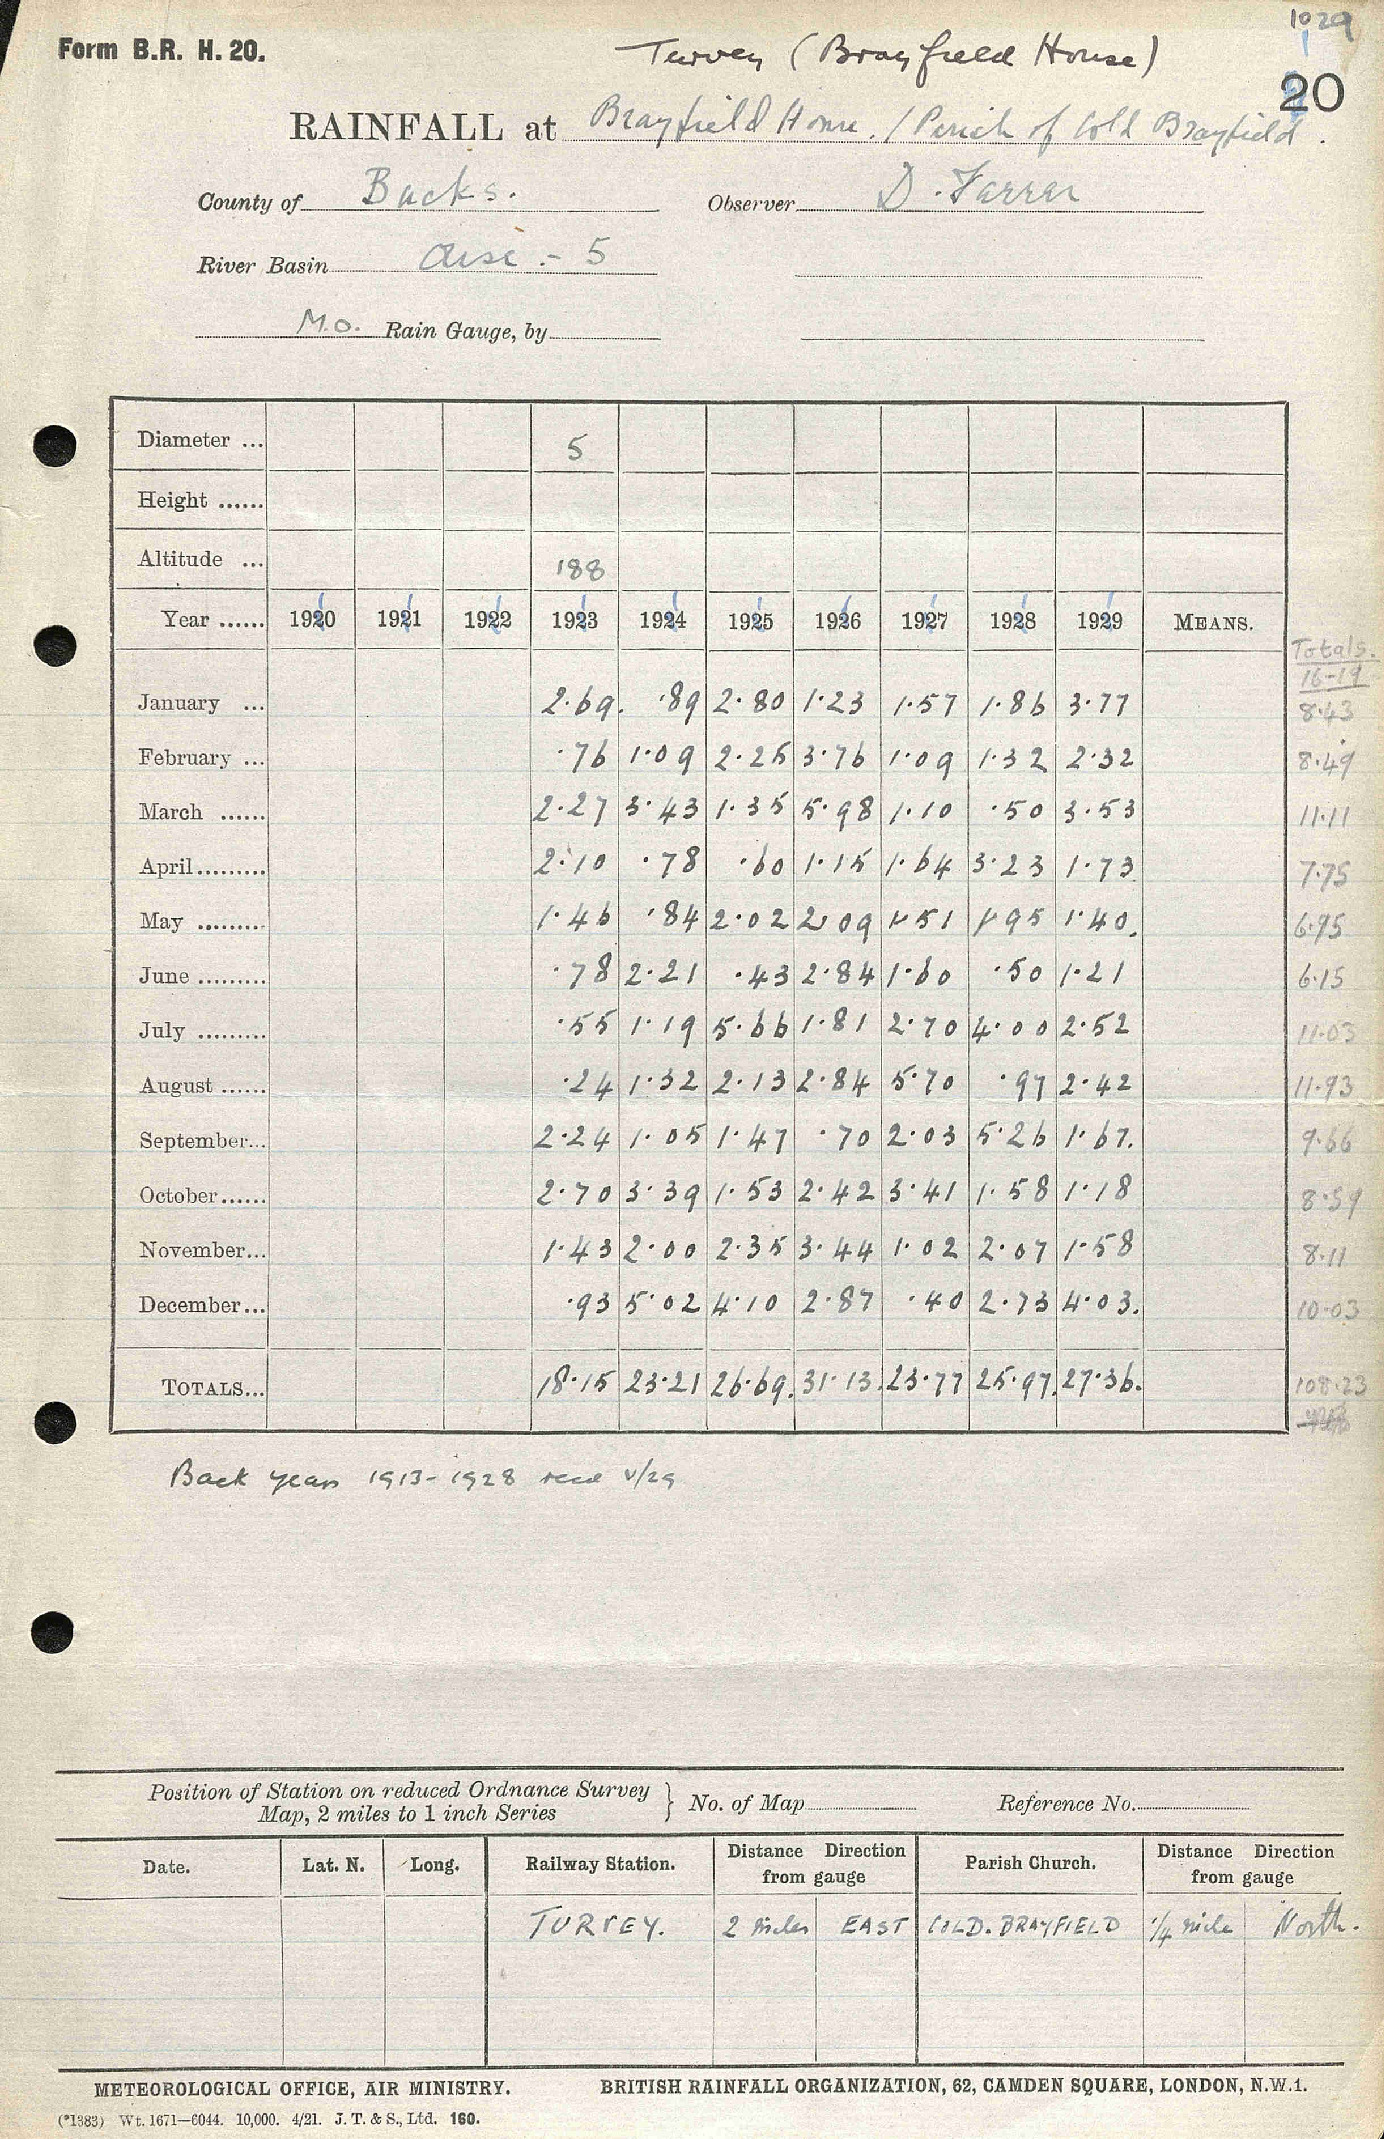 1029
Form B.R. H. 20.
Turvey (Brayfield House)
20
RAINFALL at Brayfield House. / Parish of Cold Brayfield.
County of Bucks. Observer D. Farrer
River Basin Ouse - 5
M.O. Rain Gauge, by
Diameter ... 5
Height ......
Altitude ... 188
Year ...... 1920 1921 1922 1923 1924 1925 1926 1927 1928 1929 MEANS.
Totals.
16-19
January ... 2.69. .89 2.80 1.23 1.57 1.86 3.77 8.43
February ... .76 1.09 2.25 3.76 1.09 1.32 2.32 8.49
March ...... 2.27 3.43 1.35 5.98 1.10 .50 3.53 11.11
April......... 2.10 .78 .60 1.15 1.64 3.23 1.73 7.75
May ......... 1.46 .84 2.02 2.09 1.51 1.95 1.40. 6.95
June ......... .78 2.21 .43 2.84 1.60 .50 1.21 6.15
July ......... .55 1.19 5.66 1.81 2.70 4.00 2.52 11.03
August ...... .24 1.32 2.13 2.84 5.70 .97 2.42 11.93
September... 2.24 1.05 1.47 .70 2.03 5.26 1.67. 9.66
October...... 2.70 3.39 1.53 2.42 3.41 1.58 1.18 8.59
November... 1.43 2.00 2.35 3.44 1.02 2.07 1.58 8.11
December... .93 5.02 4.10 2.87 .40 2.73 4.03. 10.03
TOTALS... 18.15 23.21 26.69. 31.13. 23.77 25.97. 27.36. 108.23
Back years 1913-1928 recd V/29
Position of Station on reduced Ordnance Survey
Map, 2 miles to 1 inch Series } No. of Map Reference No.
Date. Lat. N. Long. Railway Station. Distance Direction from gauge Parish Church. Distance Direction from gauge
TURVEY. 2 miles EAST COLD. BRAYFIELD 1/4 mile North.
METEOROLOGICAL OFFICE, AIR MINISTRY. BRITISH RAINFALL ORGANIZATION, 62, CAMDEN SQUARE, LONDON, N.W.1.
(*1383) Wt. 1671—6044. 10,000. 4/21. J. T. & S., Ltd. 160.